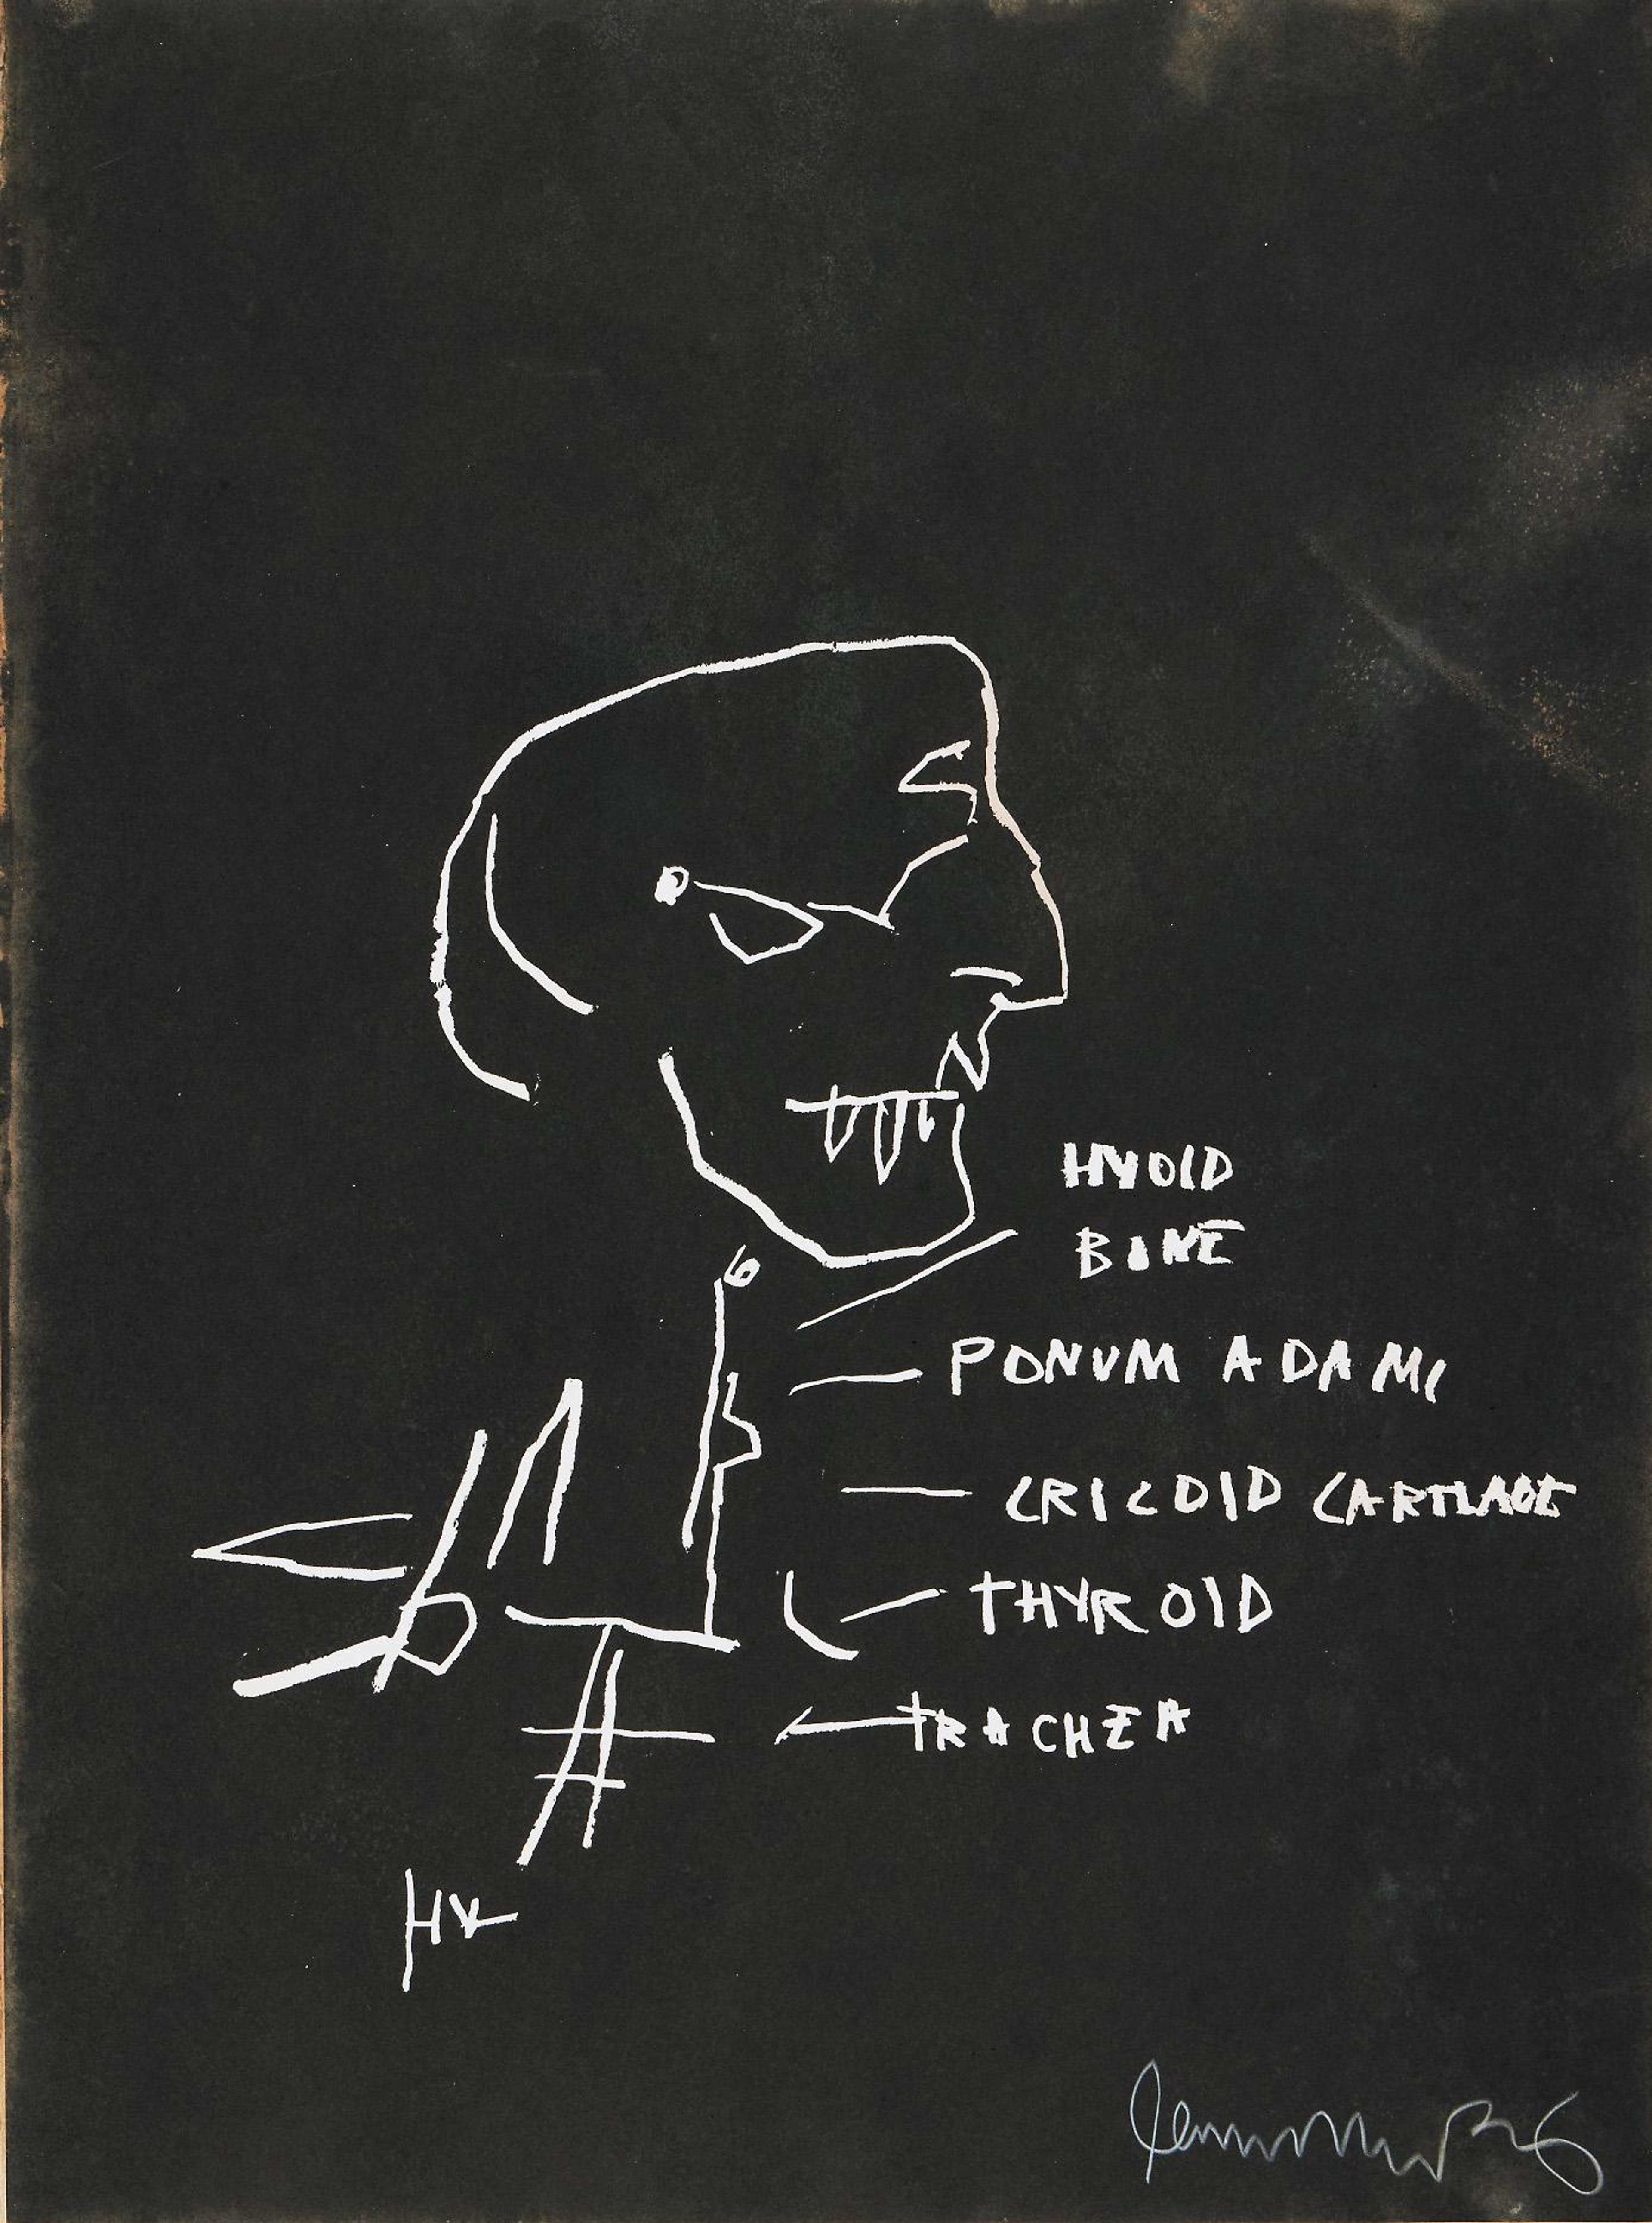 HYOID
BONE
PONUM ADAMI
CRICOID CARTILAGE
THYROID
TRACHEA